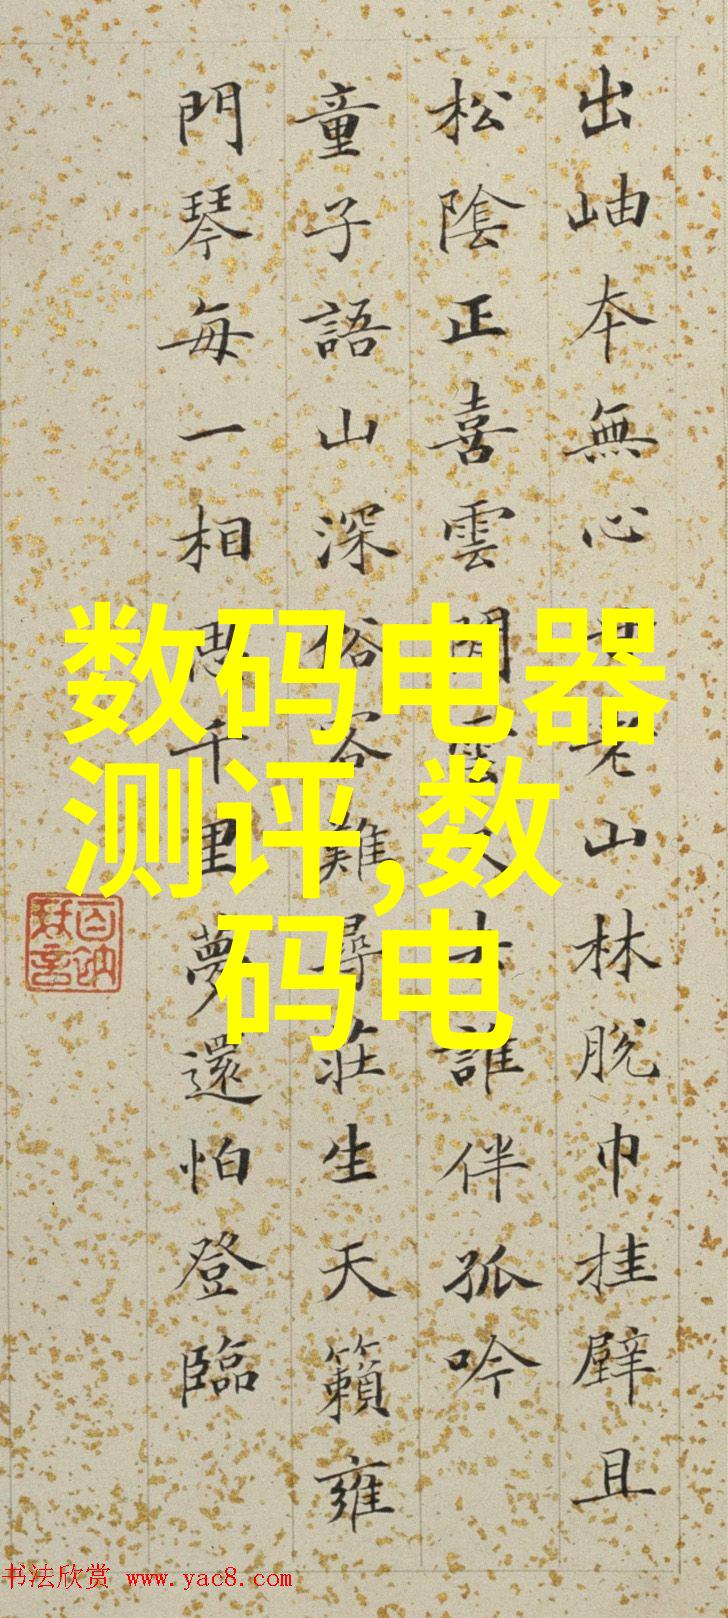 出岫本無心老山林脫巾挂壁且
松陰正喜雲閒雲誰伴孤吟
童子語山深俗客難尋莊生天籟雍
門琴每一相思千里夢還怕登臨
百衲琴言
数码电器
测评,数
码电
书法欣赏 www.yac8.com